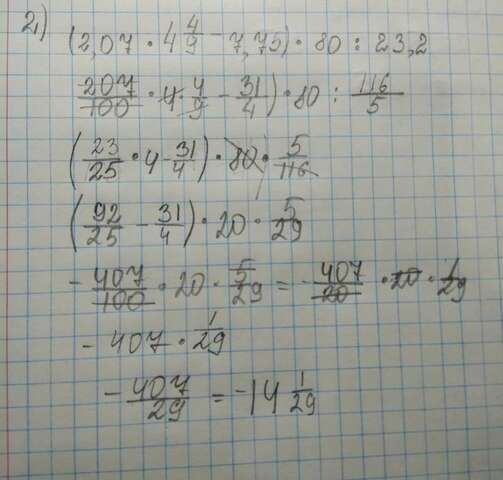 2) (2,07 · 4 4/9 - 7,75) · 80 : 23,2
207/100 · 4 4/9 - 31/4) · 80 : 116/5
(23/25 · 4 - 31/4) · 80 · 5/116
(92/25 - 31/4) · 20 · 5/29
- 407/100 · 20 · 5/29 = - 407/20 · 20 · 1/29
- 407 · 1/29
- 407/29 = -14 1/29